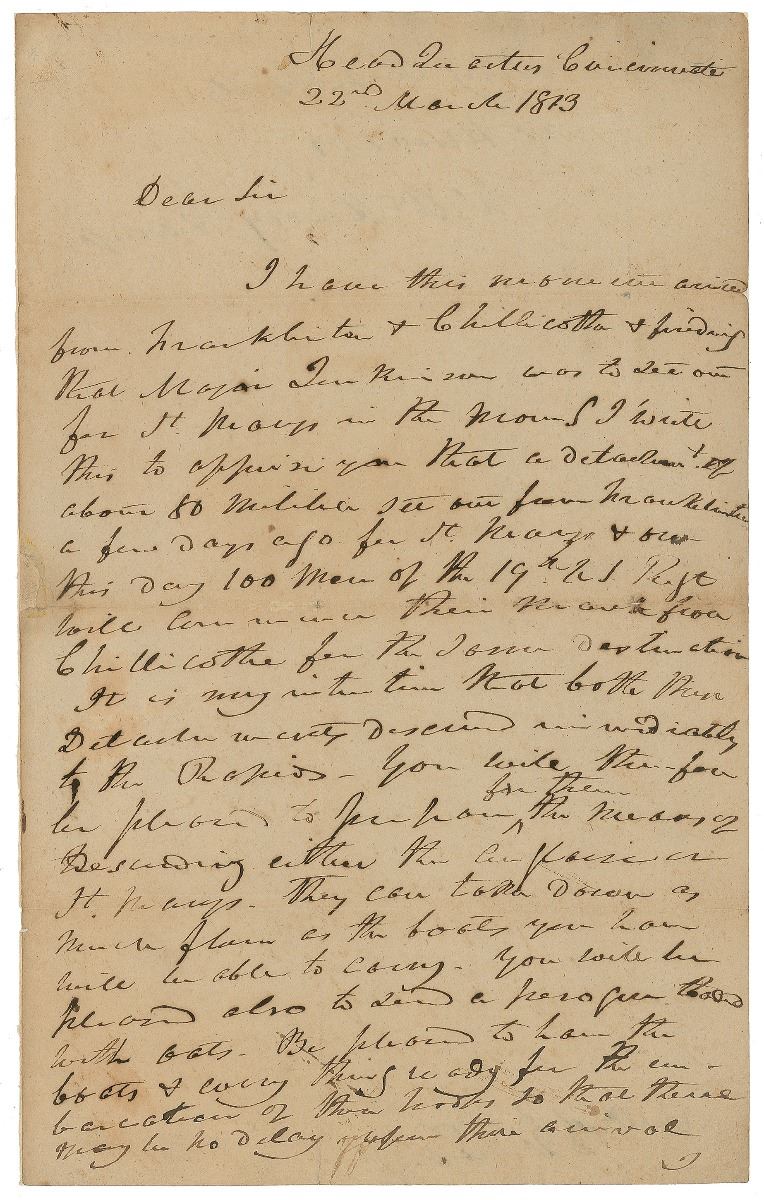 Head Quarters Cincinnati
22nd March 1813
Dear Sir
I have this moment arrived
from Franklinton & Chillicotha & finding
that Major Jenkinson was to set out
for St. Marys in the morng I write
this to apprise you that a detachmt. of
about 80 Militia set out from Franklinton
a few days ago for St. Marys & on
this day 100 Men of the 19th U S Regt
will commence their march from
Chillicothe for the same destination
It is my intention that both these
Detachments descend immediately
to the Rapids - You will therefore
be pleased to prepare for them the means of
Descending either the Au Glaise or
St. Marys - They can take down as
much flour as the boats you have
will be able to carry - You will be
pleased also to send a perogue loaded
with oats - Be pleased to have the
boats & every thing ready for the em-
barcation of these troops so that there
may be no delay after their arrival